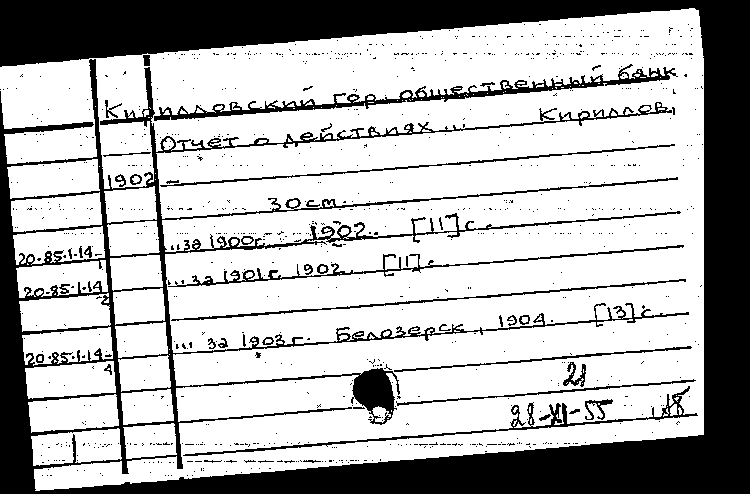 Кирилловский гор. общественный банк.
Отчет о действиях ... Кириллов,
1902 –
30 см.
20-85-1-14-1 ...за 1900г. 1902. [11] с.
20-85-1-14-2 ...за 1901 г. 1902. [11] с
20-85-1-14-4 ... за 1903 г. Белозерск, 1904. [13] с.
21
28-XI-55